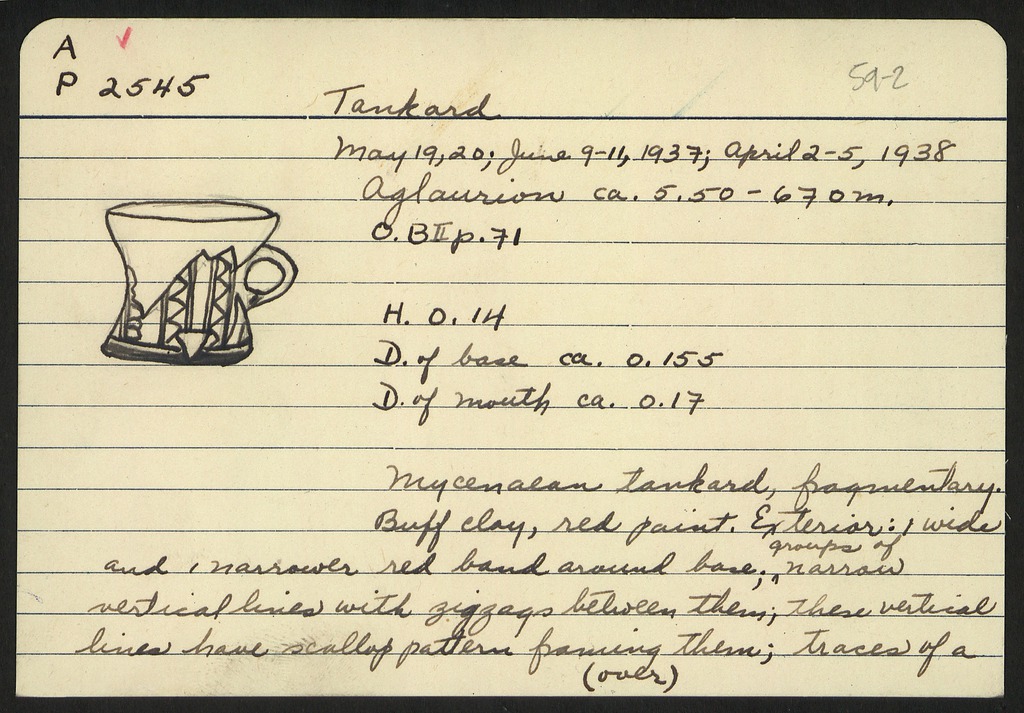 A
P 2545
59-2
Tankard
May 19, 20; June 9-11, 1937; April 2-5, 1938
Aglaurion ca. 5.50 - 6 70 m.
O.BII p.71
H. 0.14
D. of base ca. 0.155
D. of mouth ca. 0.17
Mycenaean tankard, fragmentary.
Buff clay, red paint. Exterior: 1 wide
and 1 narrower red band around base; groups of narrow
vertical lines with zigzags between them; these vertical
lines have scallop pattern framing them; traces of a
(over)